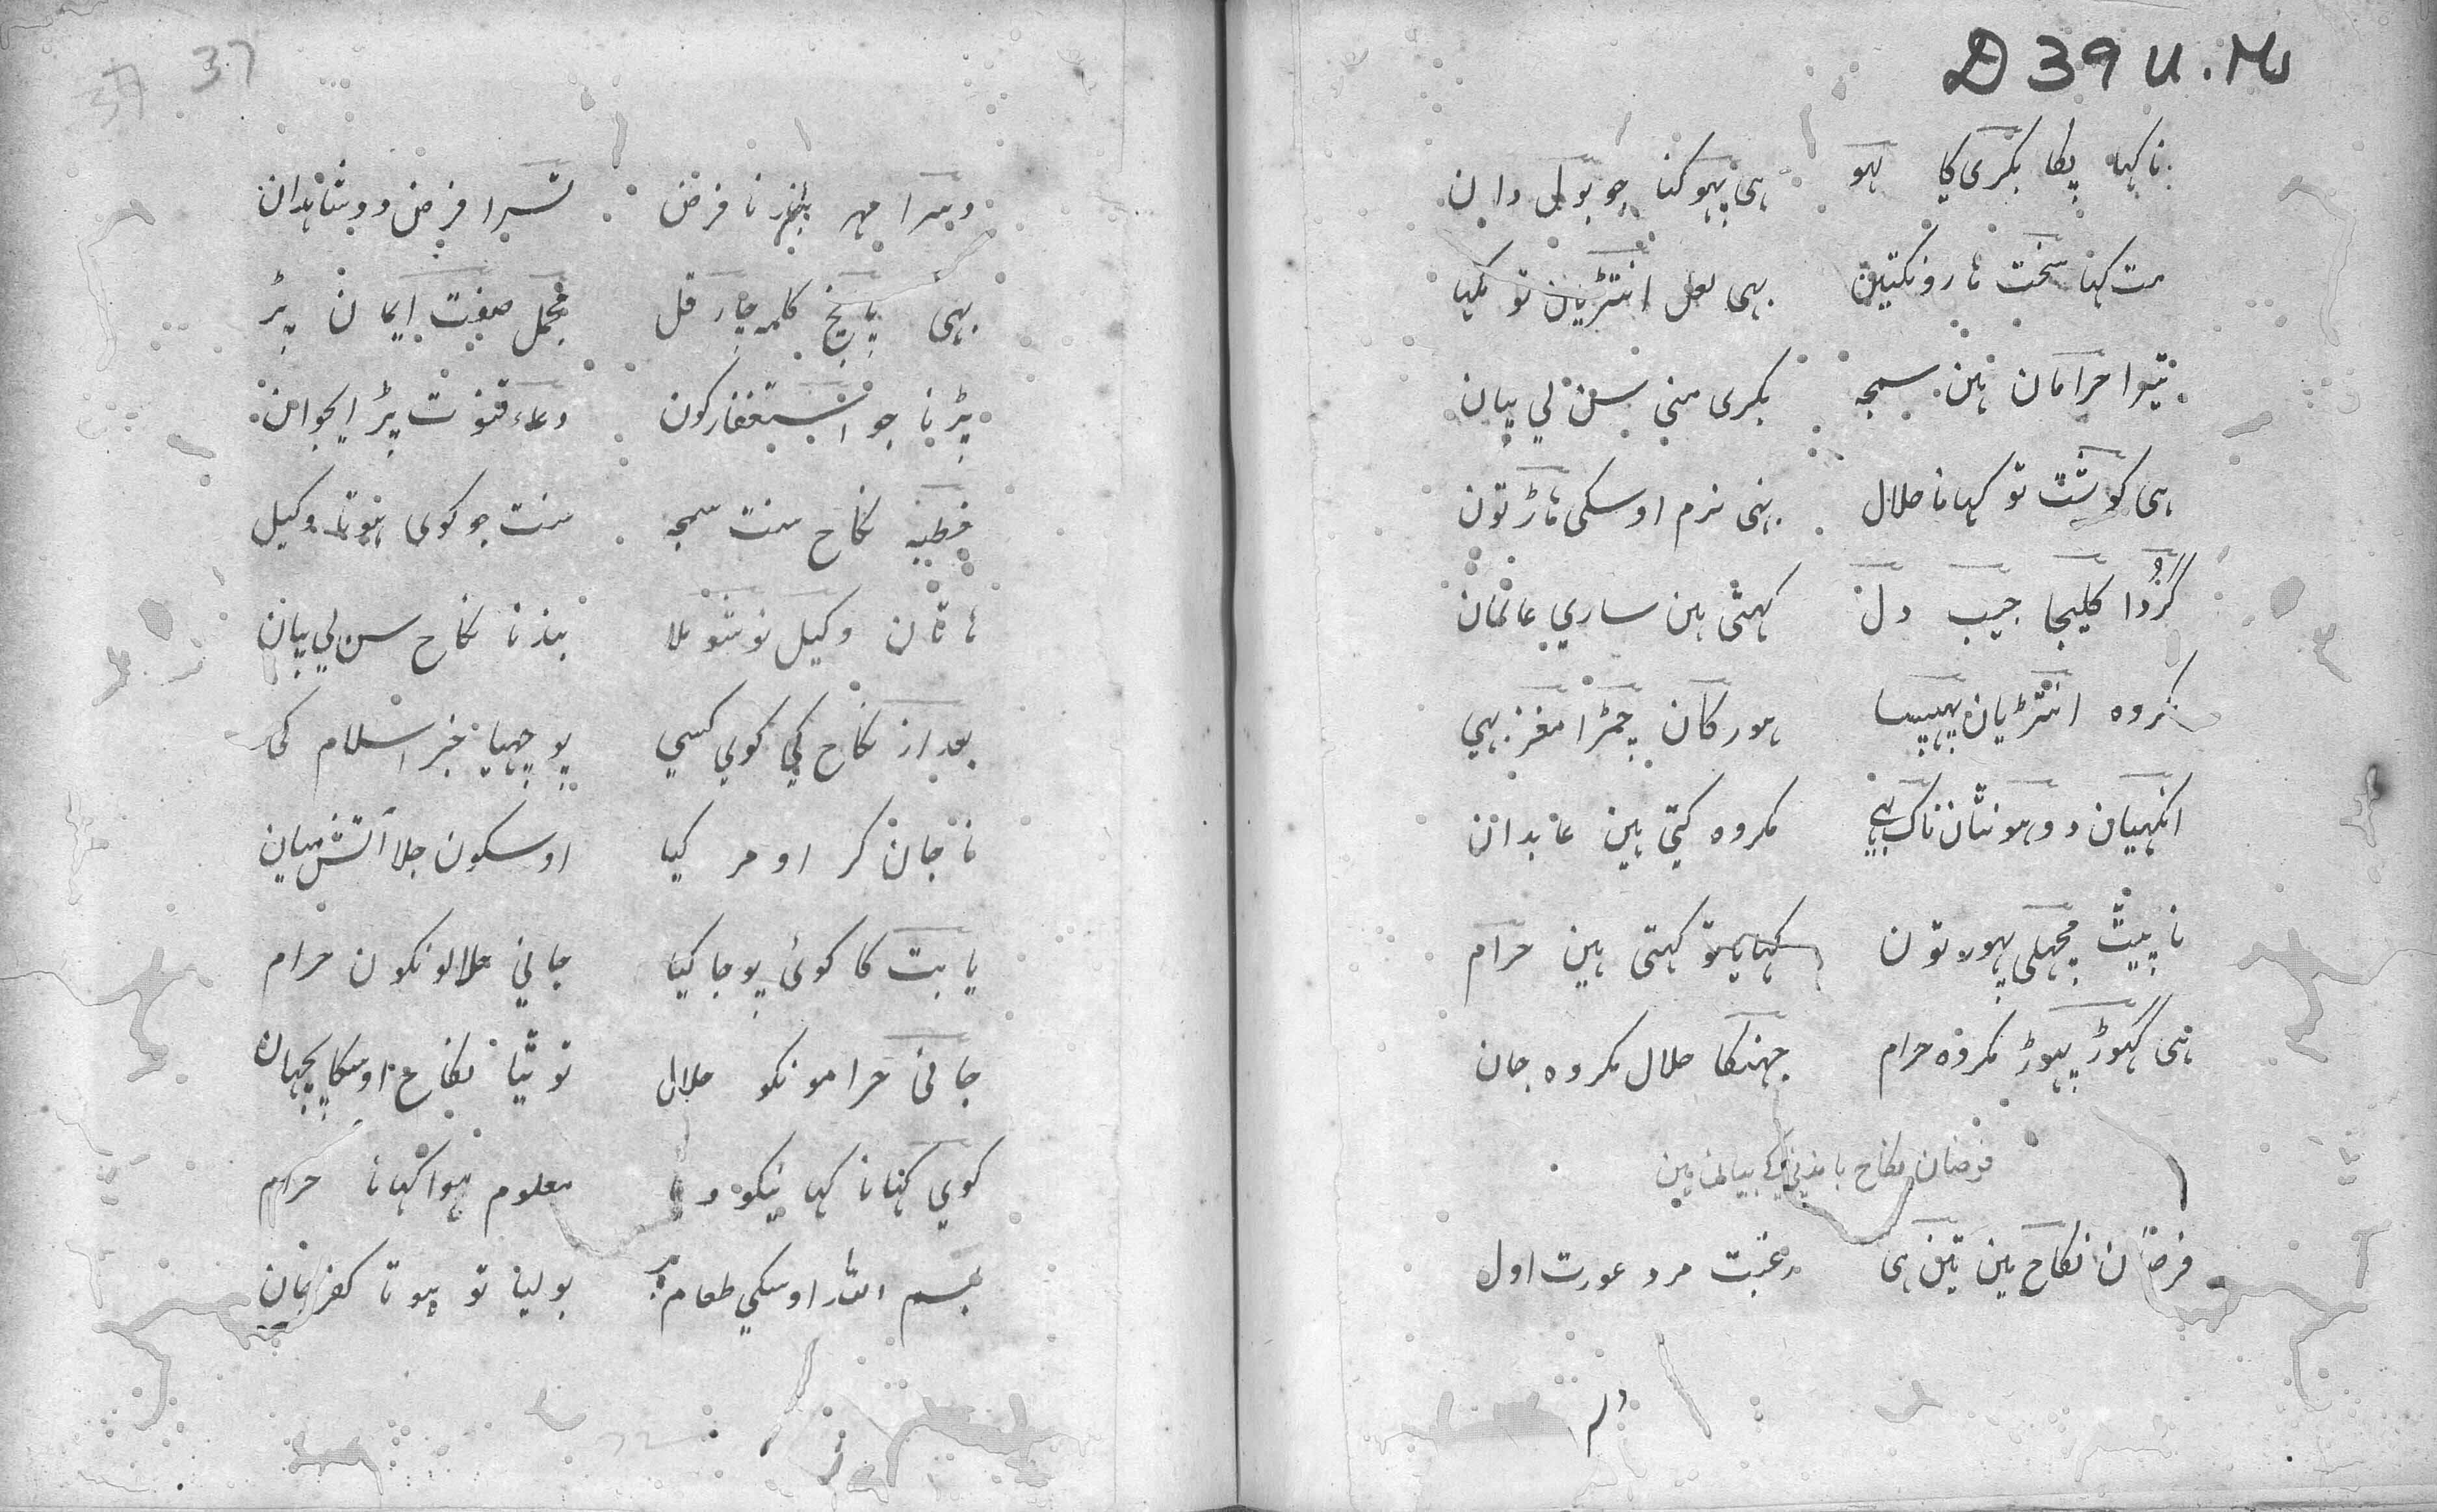 D 39 U. Ms
نا کہا پطا بکری کا لہو ہی پہوکنا جو بول دان
مت کہنا سخت نارونکتین بہی لعل انتڑیان تو نکہا
تیوا حرامان ہین سمجہ بکری منی سن لی بیان
ہی کوشت تو کہانا حلال بہی نرم اوسکی ہاڑ تون
گردا کلیجا جیب دل کہتی ہین ساری عالمان
مکروہ انتڑیان پہیپسا ہور کان چمڑا مغز بہی
انکہیان دو ہونٹان ناک بہی مکروہ کتی ہین عابدان
نا پیٹ مچہلی پہور تون کہایا تو کہتی ہین حرام
ہی گہوڑ پہوڑ مکروہ حرام جہنکا حلال مکروہ جان
فرضان نکاح باندنی کی بیان مین
فرضان نکاح مین تین ہی رغبت مرد عورت اول
37
دسرا مہر باندنا فرض تسرا فرض دو شاہدان
بہی پانچ کلمہ چار قل مجمل صفت ایمان پڑ
پڑنا جو استغفار کون دعاء قنوت پڑ ایجوان
خطبہ نکاح سنت سمجہ سنت جو کوی ہوتا وکیل
ہاتان وکیل نوشو ملا بندنا نکاح سن لی بیان
بعد از نکاح کی کوی کسی پوچہیا خبر اسلام کی
نا جان کر او مر گیا اوسکون جلا آتش میان
یا بت کا کوئی پوجا کیا جانی حلالونکون حرام
جانی حرامونکو حلال توٹیا نکاح اوسکا پچہان
کوی کہنا نا کہانیکو دیا معلوم ہوا کہانا حرام
بسم اللہ اوسکی طعام پر بولیا تو ہوتا کفر مان